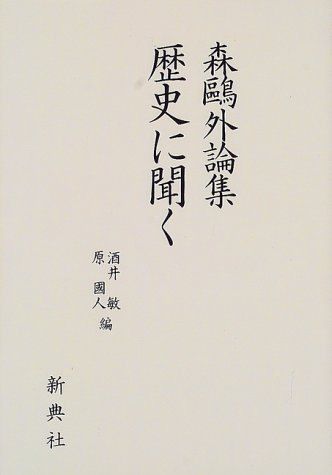 森鷗外論集
歴史に聞く
酒井敏
原國人
編
新典社